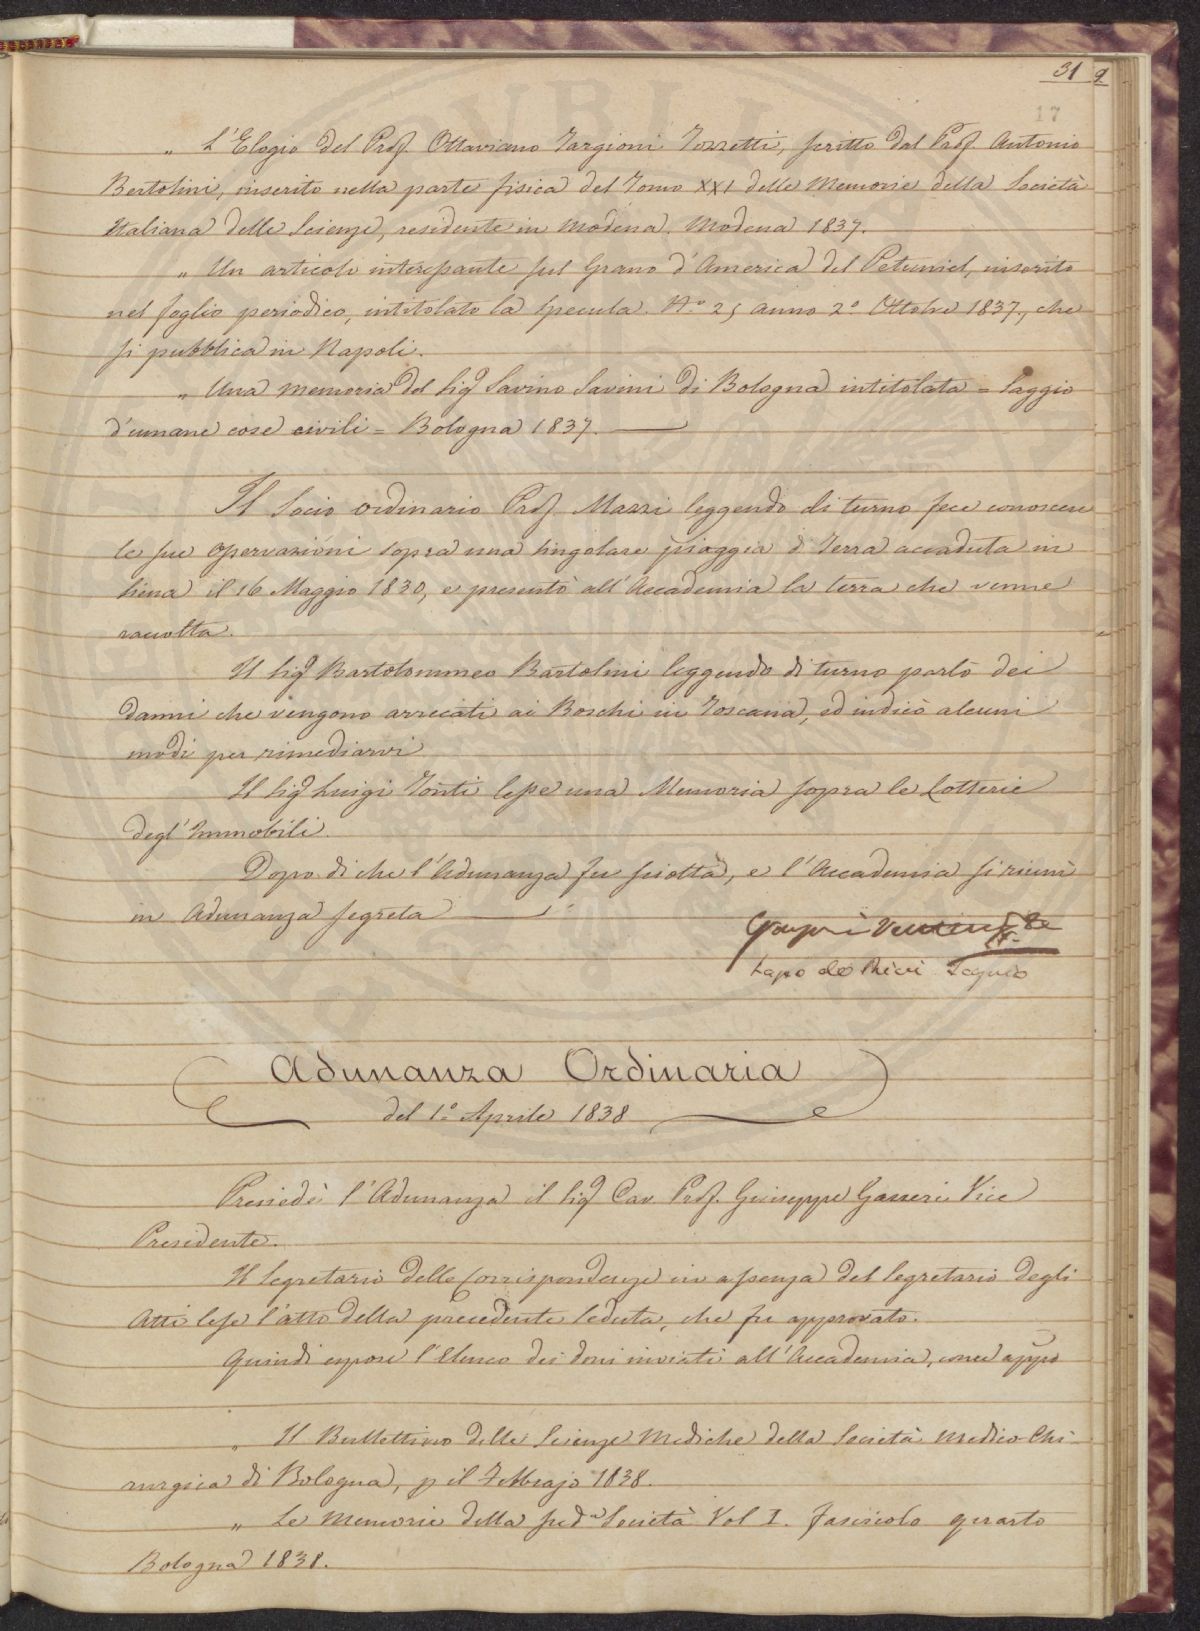 31 9
17
„ L'Elogio del Prof. Ottaviano Targioni Tozzetti, scritto dal Prof. Antonio
Bertolini, inserito nella parte fisica del Tomo XXI delle Memorie della Società
Italiana delle Scienze, residente in Modena. Modena 1837.
„ Un articolo interessante sul Grano d'America del Petuniel, inserito
nel foglio periodico, intitolato la Specula. N.° 25 anno 2° Ottobre 1837, che
si pubblica in Napoli.
„ Una memoria del Sig.r Savino Savini di Bologna intitolata = Saggio
d'umane cose civili = Bologna 1837.
Il Socio ordinario Prof. Mazzi leggendo di turno fece conoscere
le sue osservazioni sopra una singolare pioggia di Terra accaduta in
Siena il 16 Maggio 1830, e presentò all'Accademia la terra che venne
raccolta.
Il Sig.r Bartolommeo Bartolini leggendo di turno parlò dei
danni che vengono arrecati ai Boschi in Toscana, ed indicò alcuni
modi per rimediarvi
Il Sig.r Luigi Tonti lesse una Memoria sopra le Lotterie
degl'Immobili.
Dopo di che l'Adunanza fu sciolta, e l'Accademia si riunì
in Adunanza segreta
Lapo de Ricci Segrio
Adunanza Ordinaria
del 1.° Aprile 1838
Presiedè l'Adunanza il Sig.r Cav. Prof. Giuseppe Gazzeri Vice
Presidente.
Il Segretario delle Corrispondenze in assenza del Segretario degli
Atti lesse l'atto della precedente Seduta, che fu approvato.
Quindi espose l'Elenco dei doni inviati all'Accademia, come appo
„ Il Bullettino delle Scienze Mediche della Società Medico-Chi-
rurgica di Bologna, p il Febbrajo 1838.
„ Le Memorie della sud.a Società Vol I. fascicolo quarto
Bologna 1838.